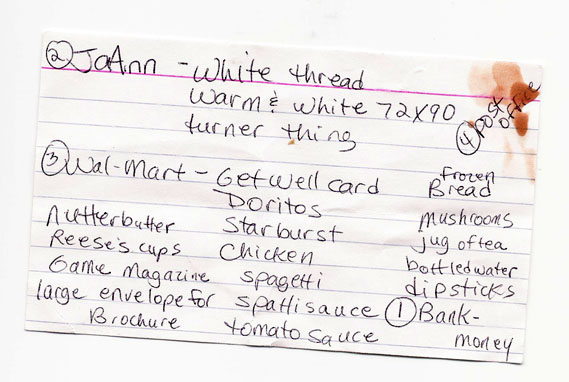 ② JoAnn - White thread
Warm & White 72X90
turner thing
④ post office
③ Wal-Mart - Get well card
Doritos
Starburst
Chicken
spagetti
spattisauce
tomato sauce
nutterbutter
Reese's cups
Game Magazine
large envelope for
Brochure
frozen
Bread
mushrooms
jug of tea
bottled water
dipsticks
① Bank-
money